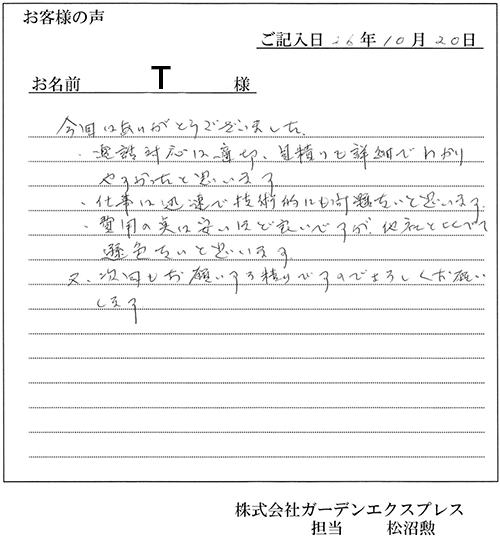 お客様の声
ご記入日 26年10月20日
お名前 T 様
今回はありがとうございました。
・電話対応は適切、見積りも詳細でわかり
やすかったと思います
・仕事は迅速で技術的にも問題ないと思います。
・費用の実は安いほど良いですが、他社とくらべて
遜色ないと思います
又、次回もお願いする積りですのでよろしくお願い
します
株式会社ガーデンエクスプレス
担当 松沼勲